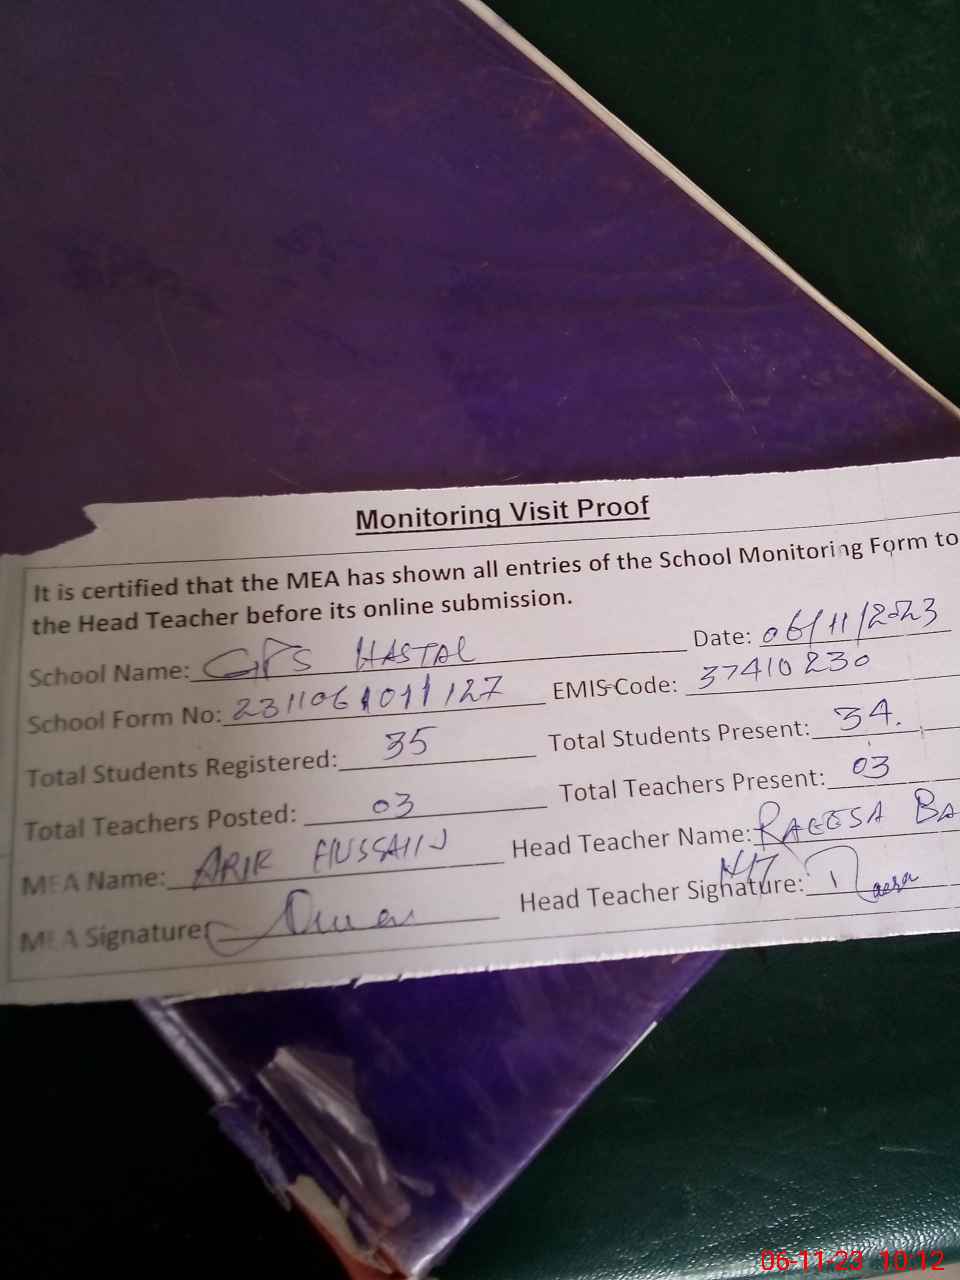 Monitoring Visit Proof
It is certified that the MEA has shown all entries of the School Monitoring Form to
the Head Teacher before its online submission.
School Name: GPS HASTAL Date: 06/11/2023
School Form No: 2311061011127 EMIS Code: 37410230
Total Students Registered: 35 Total Students Present: 34.
Total Teachers Posted: 03 Total Teachers Present: 03
MEA Name: HUSSAIN Head Teacher Name: RAEESA BA
MEA Signature: Head Teacher Signature: Raesa
06-11-23 10:12